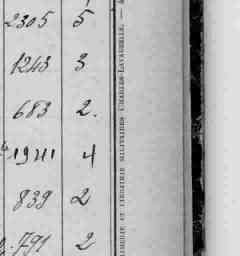 2305 5
1243 3
683 2.
1941 4
839 2
791 2
IMPRIMERIE ET LIBRAIRIE MILITAIRES CHARLES-LAVAUZELLE. —